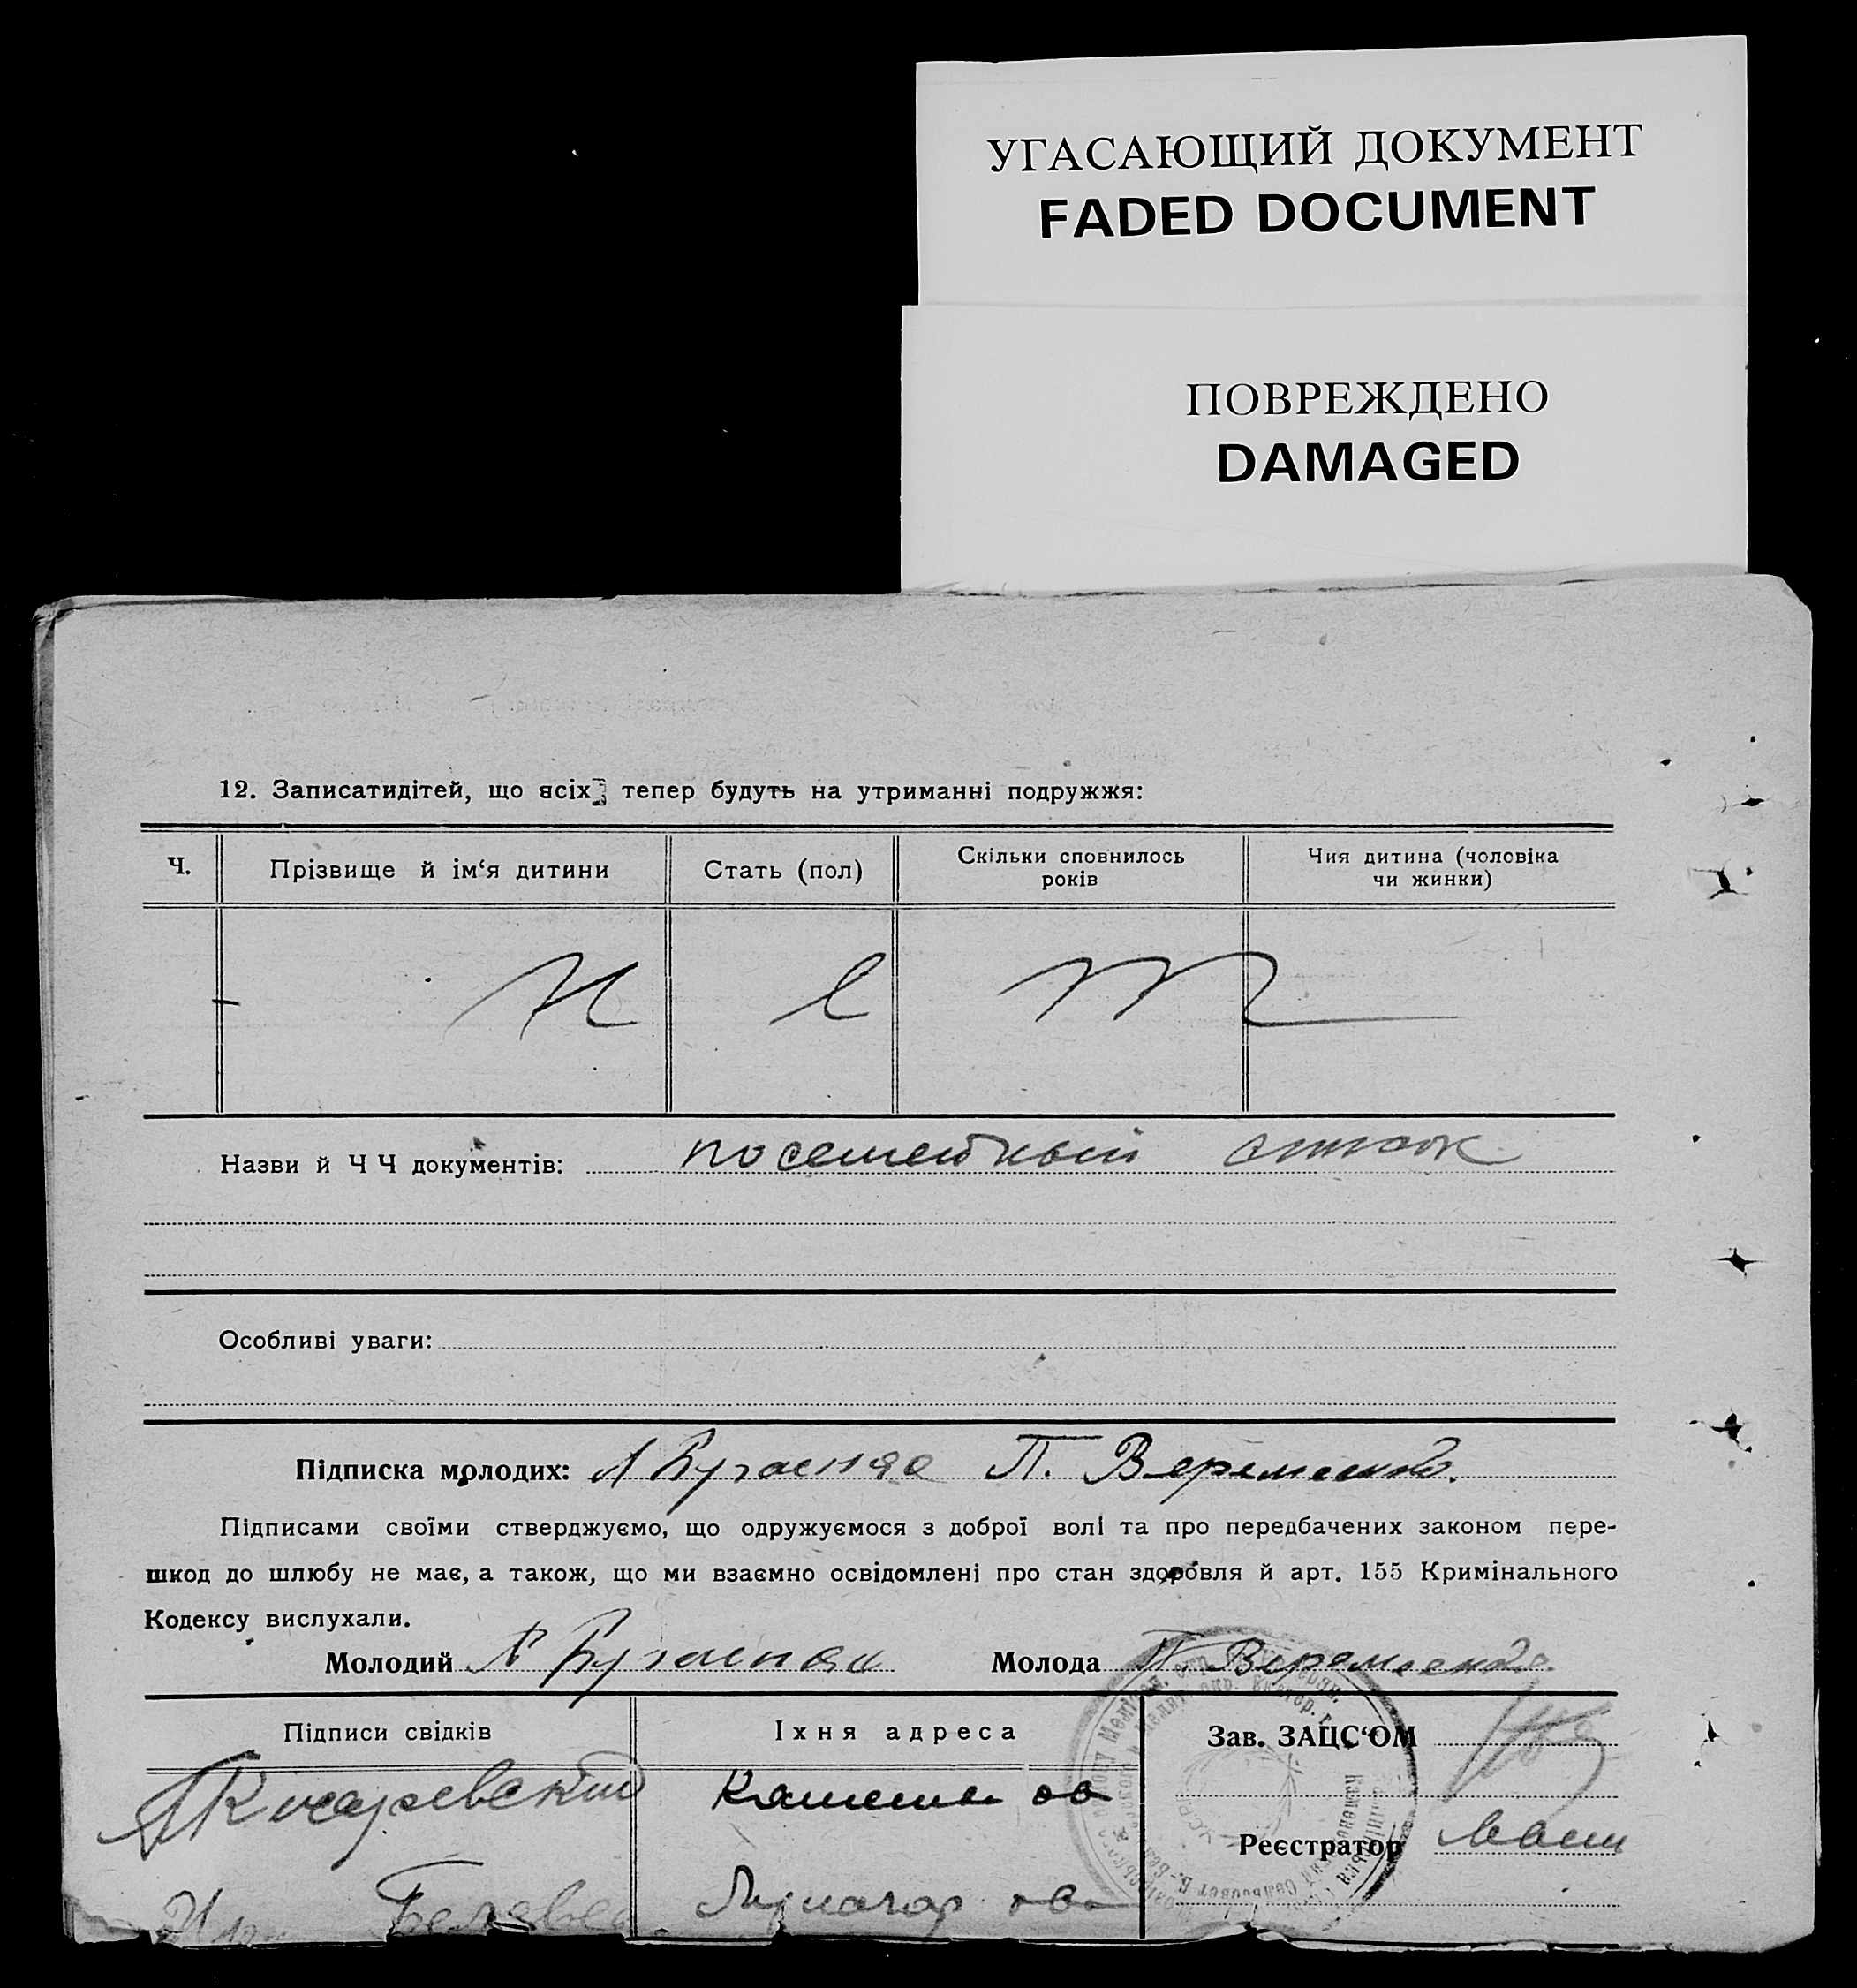 УГАСАЮЩИЙ ДОКУМЕНТ
FADED DOCUMENT
ПОВРЕЖДЕНО
DAMAGED
12. Записатидітей, що ясіх тепер будуть на утриманні подружжя:
Ч. Прізвище й ім‘я дитини Стать (пол) Скільки сповнилось років Чия дитина (чоловіка чи жинки)
Н е т
Назви й Ч Ч документів: посемейный список
Особливі уваги:
Підписка молодих: П. Веремеенко.
Підписами своїми стверджуємо, що одружуємося з доброї волі та про передбачених законом пере-
шкод до шлюбу не має, а також, що ми взаємно освідомлені про стан здоровля й арт. 155 Кримінального
Кодексу вислухали.
Молодий Молода П. Веремеенко.
Підписи свідків Їхня адреса Зав. ЗАЦС‘ОМ
Реєстратор